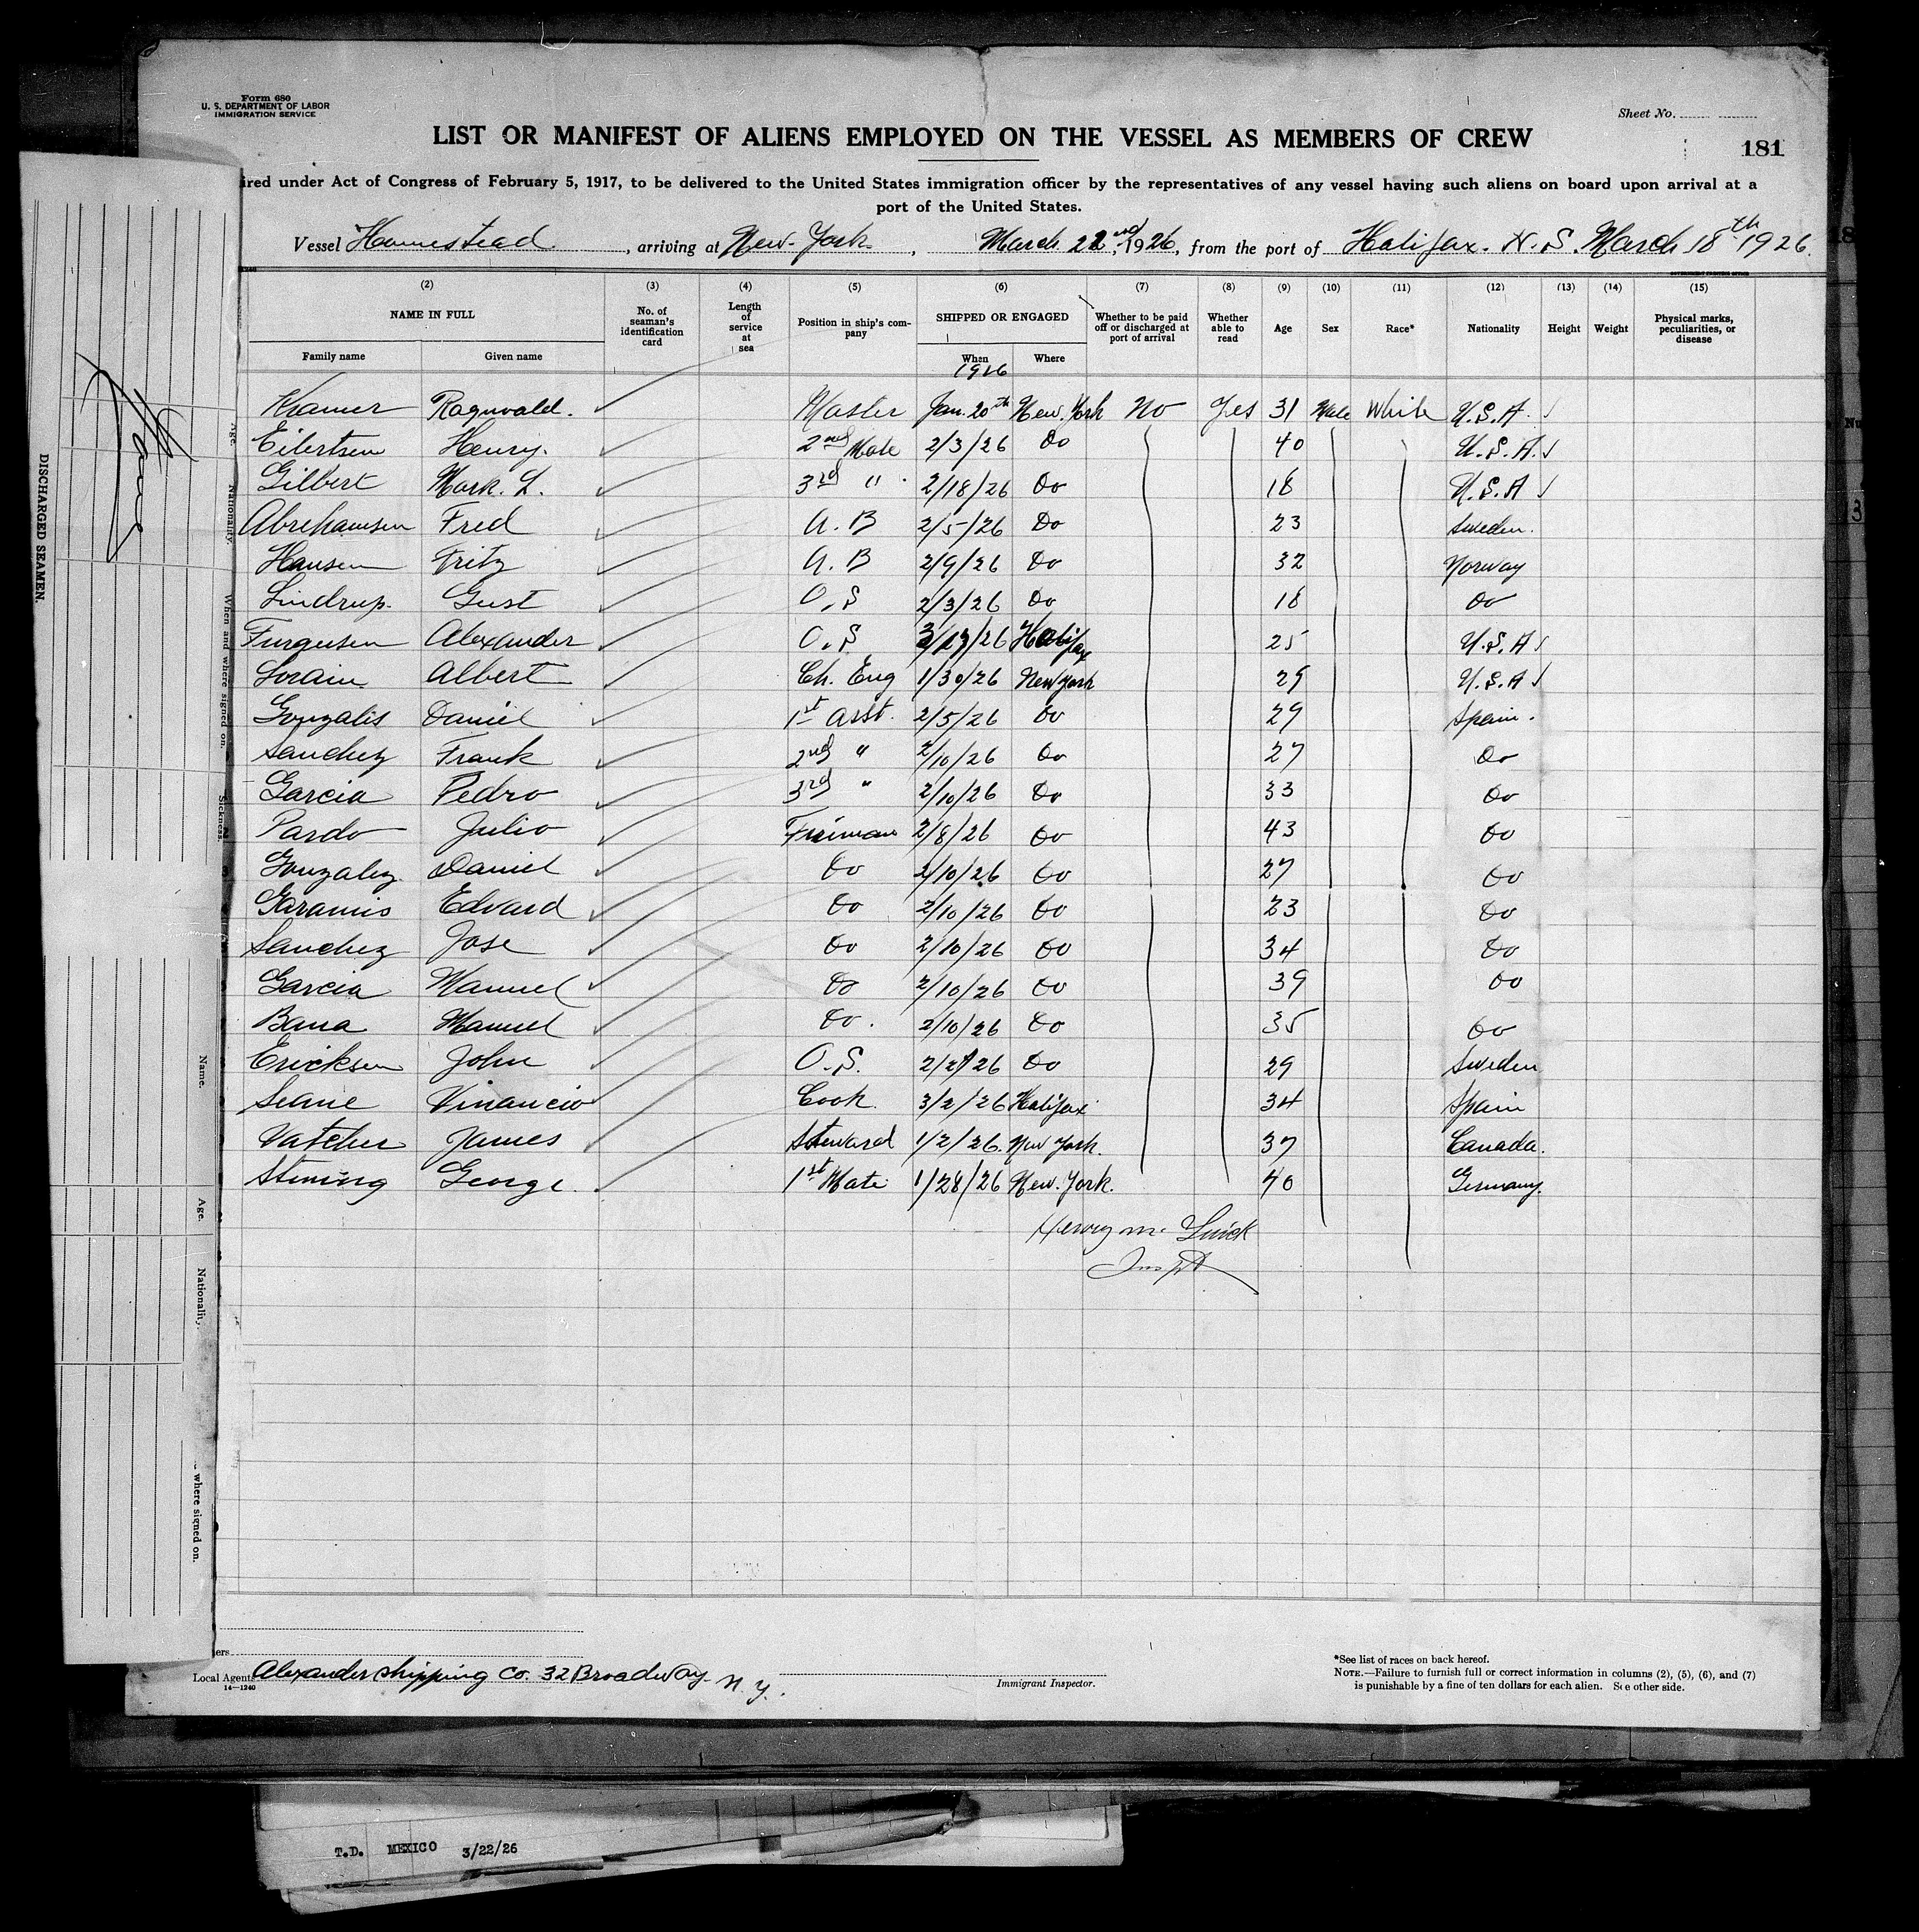 Form 680
U. S. DEPARTMENT OF LABOR
IMMIGRATION SERVICE
Sheet No.
LIST OR MANIFEST OF ALIENS EMPLOYED ON THE VESSEL AS MEMBERS OF CREW
181
ired under Act of Congress of February 5, 1917, to be delivered to the United States immigration officer by the representatives of any vessel having such aliens on board upon arrival at a
port of the United States.
Vessel Homestead, arriving at New-York, March 22nd, 1926, from the port of Halifax. N.S. March 18th 1926.
(2) (3) (4) (5) (6) (7) (8) (9) (10) (11) (12) (13) (14) (15)
NAME IN FULL No. of seaman's identification card Length of service at sea Position in ship's company SHIPPED OR ENGAGED Whether to be paid off or discharged at port of arrival Whether able to read Age Sex Race* Nationality Height Weight Physical marks, peculiarities, or disease
Family name Given name When Where
1926
Kramer Ragnvald. Master Jan. 20th New. York No Yes 31 Male White U.S.A.
Eilertsen Henry. 2nd Mate 2/3/26 Do 40 U.S.A.
Gilbert Mark. L. 3rd " 2/18/26 Do 18 U.S.A
Abrehamsen Fred A.B 2/5/26 Do 23 Sweden.
Hansen Fritz A.B 2/9/26 Do 32 Norway
Lindrup. Gust O.S 2/3/26 Do 18 Do
Furgusen Alexander O.S 3/17/26 Halifax 25 U.S.A
Lorain Albert Ch. Eng 1/30/26 New York 29 U.S.A
Gonzalis Daniel 1st Asst. 2/5/26 Do 29 Spain.
Sanchez Frank 2nd " 2/10/26 Do 27 Do
Garcia Pedro 3rd " 2/10/26 Do 33 Do
Pardo Julio Fireman 2/8/26 Do 43 Do
Gonzalez Daniel Do 2/10/26 Do 27 Do
Garamis Edvard Do 2/10/26 Do 23 Do
Sanchez Jose Do 2/10/26 Do 34 Do
Garcia Manuel Do 2/10/26 Do 39 Do
Bana Manuel Do. 2/10/26 Do 35 Do
Ericksen John O.S. 2/27/26 Do 29 Sweden
Seane Vinancio Cook. 3/2/26 Halifax 34 Spain
Vatcher James Steward 1/2/26. New York. 37 Canada.
Stening George. 1st Mate 1/28/26 New. York. 40 Germany.
DISCHARGED SEAMEN.
None
Age.
Nationality.
When and where signed on.
Sickness.
Name.
Age.
Nationality.
where signed on.
Local Agents Alexander Shipping Co. 32 Broadway N.Y.
14—1240
Immigrant Inspector.
*See list of races on back hereof.
NOTE.—Failure to furnish full or correct information in columns (2), (5), (6), and (7)
is punishable by a fine of ten dollars for each alien. See other side.
T.D. MEXICO 3/22/26